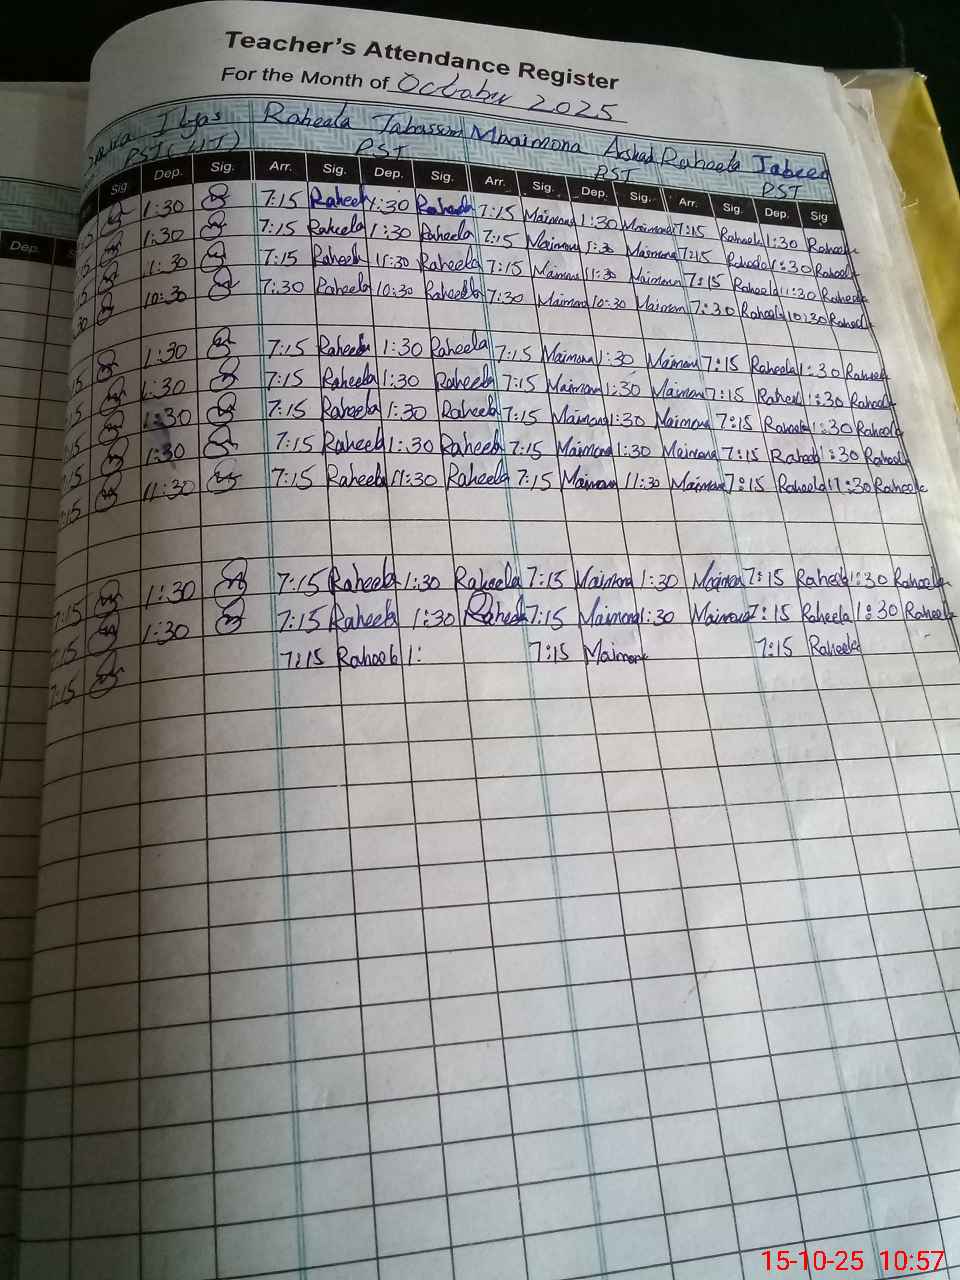 Teacher's Attendance Register
For the Month of October 2025
Ilyas Raheela Tabassum Mmaimona Arshad Raheela Jabeen
PST (UT) PST PST PST
Dep. Sig Dep. Sig. Arr. Sig. Dep. Sig. Arr. Sig. Dep. Sig. Arr. Sig. Dep. Sig
1:30 7:15 Raheela 1:30 Raheela 7:15 Maimona 1:30 Maimona 7:15 Raheela 1:30 Raheela
1:30 7:15 Raheela 1:30 Raheela 7:15 Maimona 1:30 Maimona 7:15 Raheela 1:30 Raheela
11:30 7:15 Raheela 11:30 Raheela 7:15 Maimona 11:30 Maimona 7:15 Raheela 11:30 Raheela
10:30 7:30 Raheela 10:30 Raheela 7:30 Maimona 10:30 Maimona 7:30 Raheela 10:30 Raheela
1:30 7:15 Raheela 1:30 Raheela 7:15 Maimona 1:30 Maimona 7:15 Raheela 1:30 Raheela
1:30 7:15 Raheela 1:30 Raheela 7:15 Maimona 1:30 Maimona 7:15 Raheela 1:30 Raheela
1:30 7:15 Raheela 1:30 Raheela 7:15 Maimona 1:30 Maimona 7:15 Raheela 1:30 Raheela
1:30 7:15 Raheela 1:30 Raheela 7:15 Maimona 1:30 Maimona 7:15 Raheela 1:30 Raheela
7:15 11:30 7:15 Raheela 11:30 Raheela 7:15 Maimona 11:30 Maimona 7:15 Raheela 11:30 Raheela
7:15 1:30 7:15 Raheela 1:30 Raheela 7:15 Maimona 1:30 Maimona 7:15 Raheela 1:30 Raheela
7:15 1:30 7:15 Raheela 1:30 Raheela 7:15 Maimona 1:30 Maimona 7:15 Raheela 1:30 Raheela
7:15 7:15 Raheela 1: 7:15 Maimona 7:15 Raheela
15-10-25 10:57